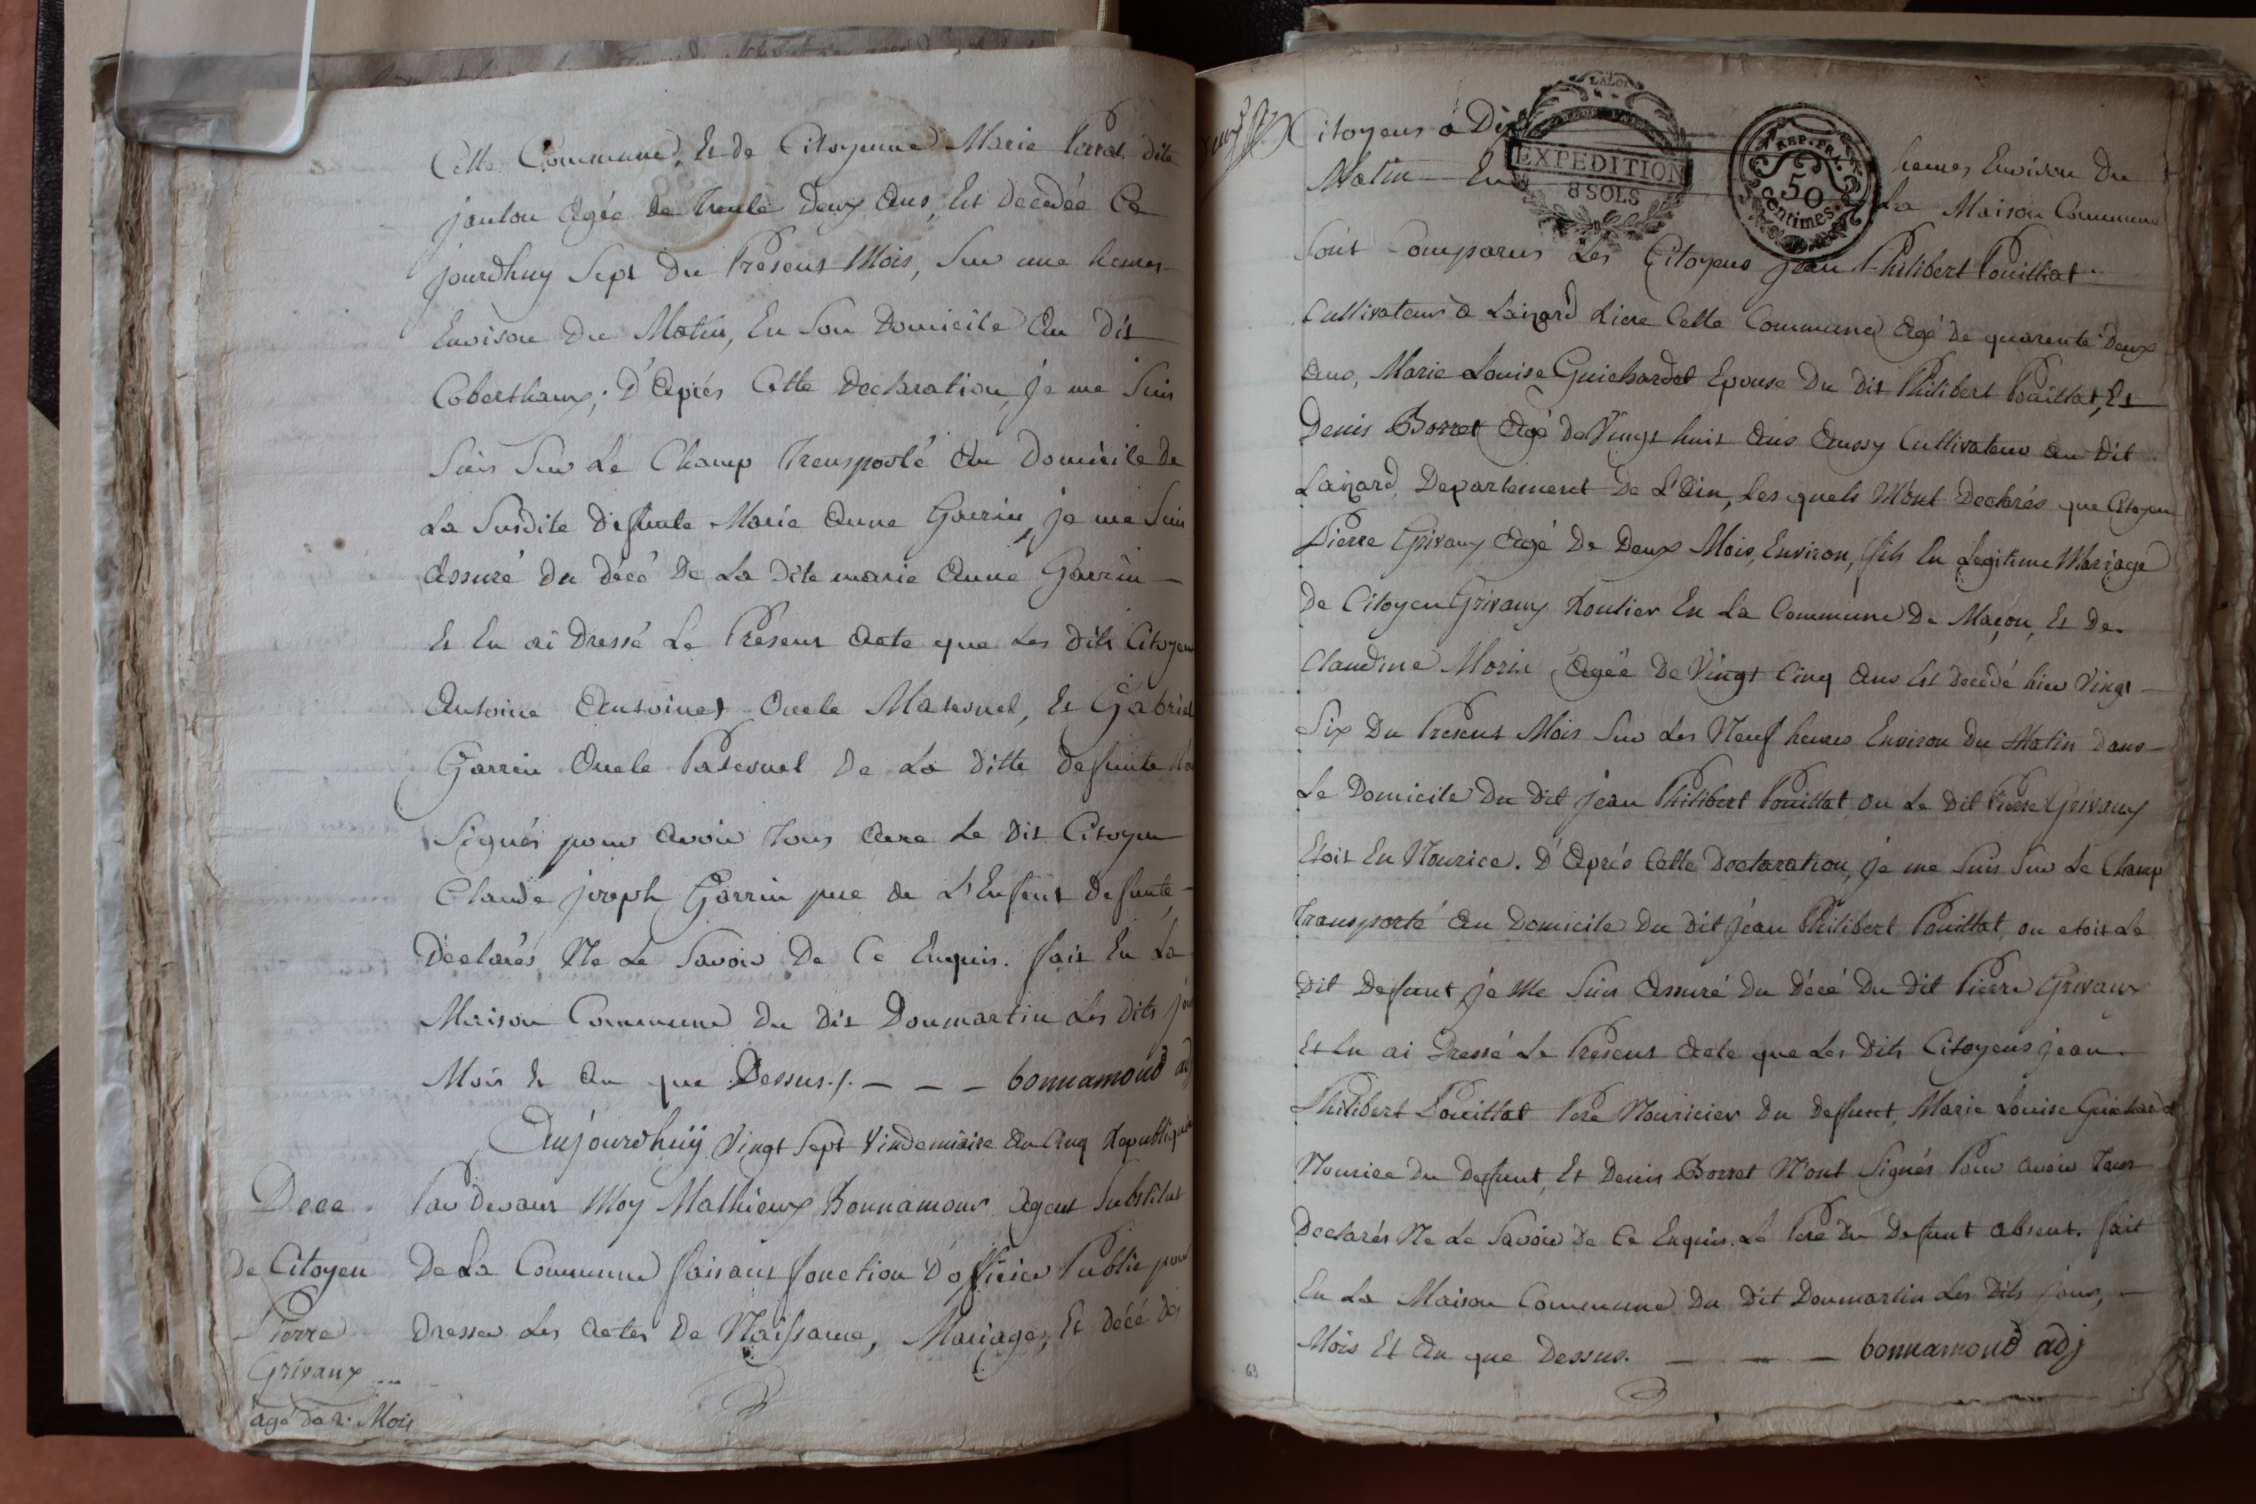 Cette Commune, Et de Citoyenne Marie Perrat dite
janton agée de Trente deux ans, Est decedée Ce
jourdhuy Sept du Present Mois, Sur une heures
Environ du Matin, En Son Domicile Au dit
Coberthoux; D'Aprés Cette Declaration, je me Suis
Suis Sur Le Champ Transporté Au Domicile de
La Susdite defunte Marie Anne Garrin, je me Suis
Assuré du décé de La dite marie Anne Garrin
Et En ai Dressé Le Present Acte que Les dits Citoyens
Antoine Antoinet Oncle Maternel, Et Gabriel
Garrin Oncle Paternel de La ditte defunte
Signés pour avoir Tous avec Le dit Citoyen
Claude joseph Garrin pere de L'Enfent defunte,
Déclarés Ne Le Savoir De Ce Enquis. fait En La
Maison Commune du dit Donmartin Les dits
Mois Et An que Dessus./. bonnamoud adj
Aujourdhuÿ Vingt Sept Vindemiaire An Cinq Republiquain
Par devant Moy Mathieux Bonnamour Agent Substitut
De La Commune faisant fonction D'officier Public pour
dresser Les Actes De Naissance, Mariages, Et décé des
Dece
de Citoyen
Pierre
Grivaux
agé de 2. Mois
Citoyens à Dix heures Environ du
Matin En La Maison Commune
LA LOI
EXPEDITION
8 SOLS
REP. FRA.
50
Centimes
Sont Comparus Les Citoyens jean Philibert Pouillat
Cultivateur a Laizard Liere Cette Commune Agé de quarente Deux
Ans, Marie Louise Guichardet Epouse Du dit Philibert Pouillat, Et
Denis Borret Agé De Vingt huit Ans Aussy Cultivateur au Dit
Laizard, Departement De L'Ain, Les quels M'ont Declarés que Citoyen
Pierre Grivaux Agé De Deux Mois, Environ, fils En Legitime Mariage
De Citoyen Grivaux Roulier En La Commune De Maçon, Et De
Claudine Morin, Agée De Vingt Cinq Ans Est décédé hier Vingt
Six Du Present Mois Sur Les Neuf heures Environ du Matin Dans
Le Domicile Du Dit jean Philibert Pouillat, ou Le Dit Pierre Grivaux
Etoit En Nourice. D'Aprés Cette Declaration, je me Suis Sur Le Champ
Transporté Au Domicile Du Dit jean Philibert Pouillat, ou etoit Le
Dit Defunt je Me Suis Assuré Du Décé Du Dit Pierre Grivaux
Et En ai Dressé Le Present Acte que Les Dits Citoyens jean
Philibert Pouillat Pere Nouricier du Defunt, Marie Louise Guichardet
Nourice Du Defunt, Et Denis Borret N'ont Signés Pour avoir Tous
Declarés Ne Le Savoir De Ce Enquis. Le Pere Du Defunt absent. fait
En La Maison Commune Du Dit Donmartin Les Dits jour,
Mois Et An que Dessus. bonnamoud adj
63